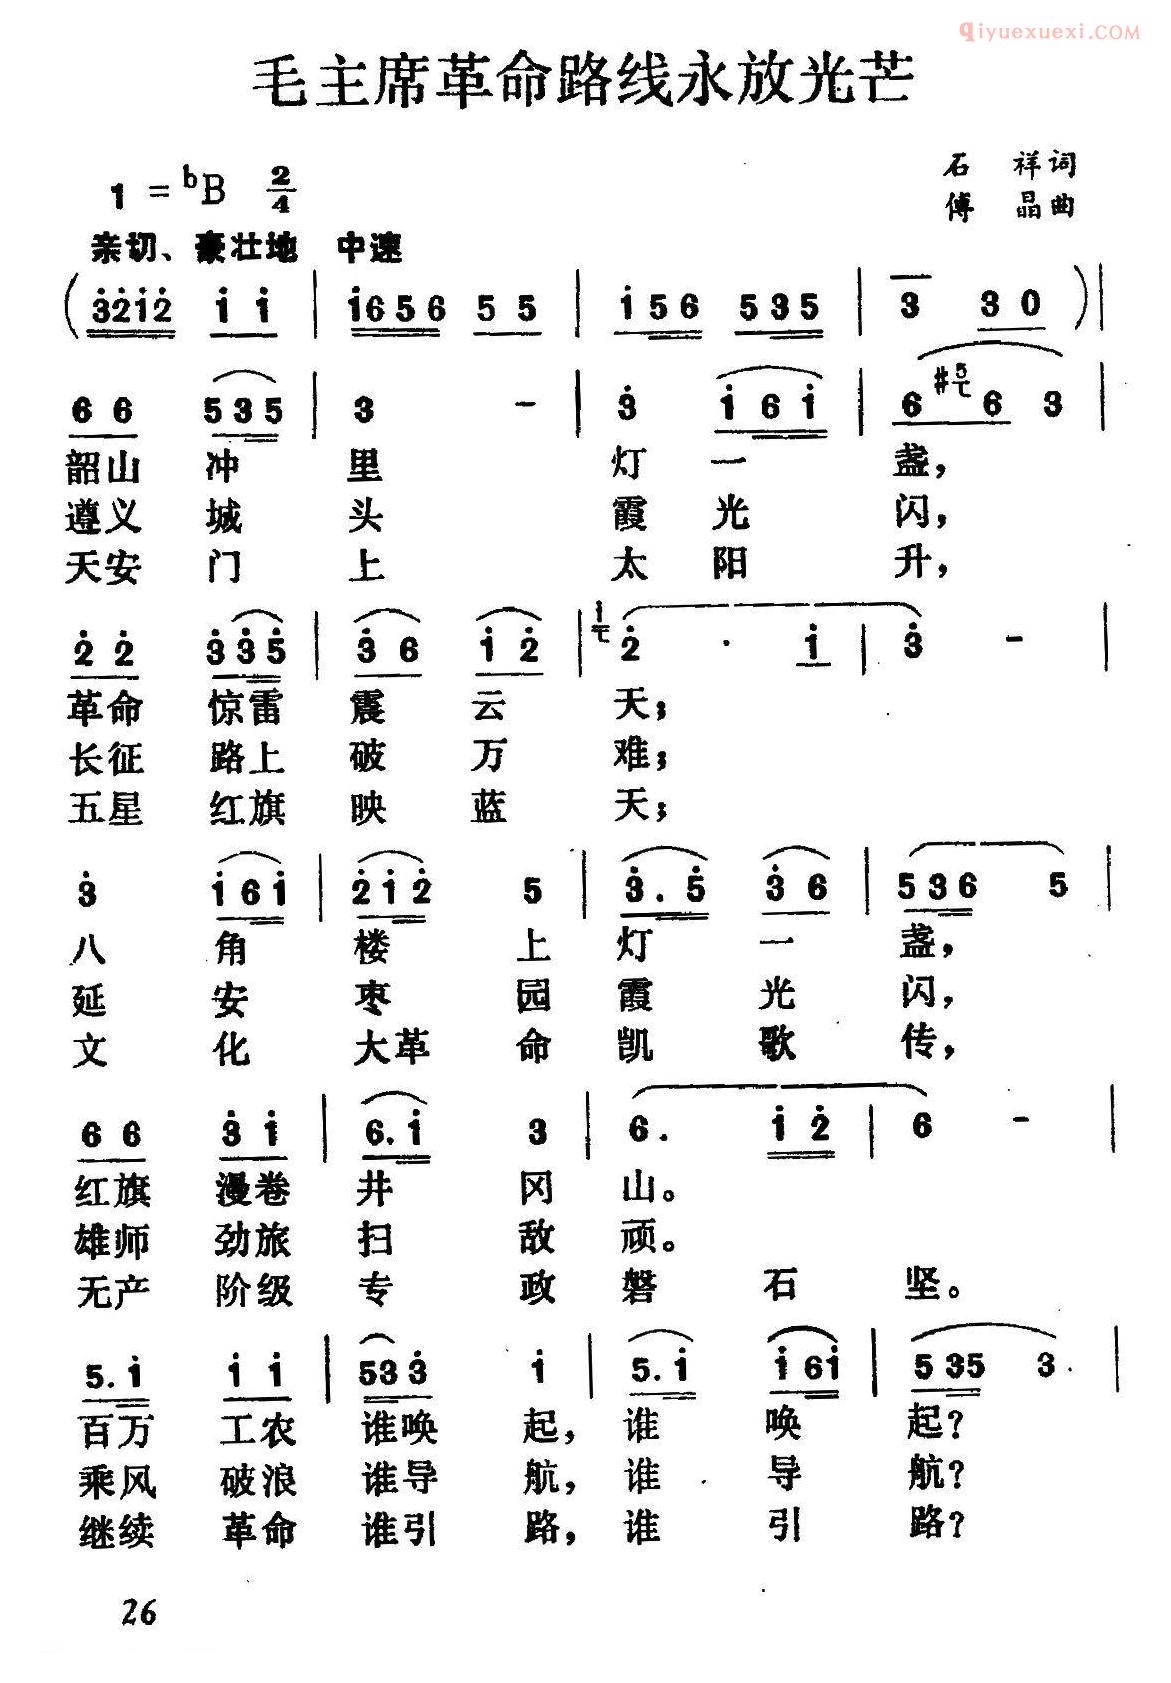 qiyuexuexi.COM
毛主席革命路线永放光芒
石 祥词
1 = ᵇB 2/4
傅 晶曲
亲切、豪壮地 中速
( 3̇2̇1̇2̇ 1̇ 1̇ | 1̇656 5 5 | 1̇56 535 | 3 3 0 ) |
6 6 535 | 3 - | 3̇ 1̇61̇ | 6 #5 6 3 |
韶山 冲 里 灯 一 盏,
遵义 城 头 霞 光 闪,
天安 门 上 太 阳 升,
2̇ 2̇ 3̇3̇5̇ | 3̇ 6 1̇ 2̇ | 1̇ 2̇ · 1̇ | 3̇ - |
革命 惊雷 震 云 天;
长征 路上 破 万 难;
五星 红旗 映 蓝 天;
3̇ 1̇61̇ | 2̇1̇2̇ 5 | 3̇.5̇ 3̇ 6 | 536 5 |
八 角 楼 上 灯 一 盏,
延 安 枣 园 霞 光 闪,
文 化 大革 命 凯 歌 传,
6 6 3̇ 1̇ | 6.1̇ 3 | 6. 1̇2̇ | 6 - |
红旗 漫卷 井 冈 山。
雄师 劲旅 扫 敌 顽。
无产 阶级 专 政 磐 石 坚。
5.1̇ 1̇ 1̇ | 533̇ 1̇ | 5.1̇ 1̇61̇ | 535 3 |
百万 工农 谁唤 起, 谁 唤 起?
乘风 破浪 谁导 航, 谁 导 航?
继续 革命 谁引 路, 谁 引 路?
26